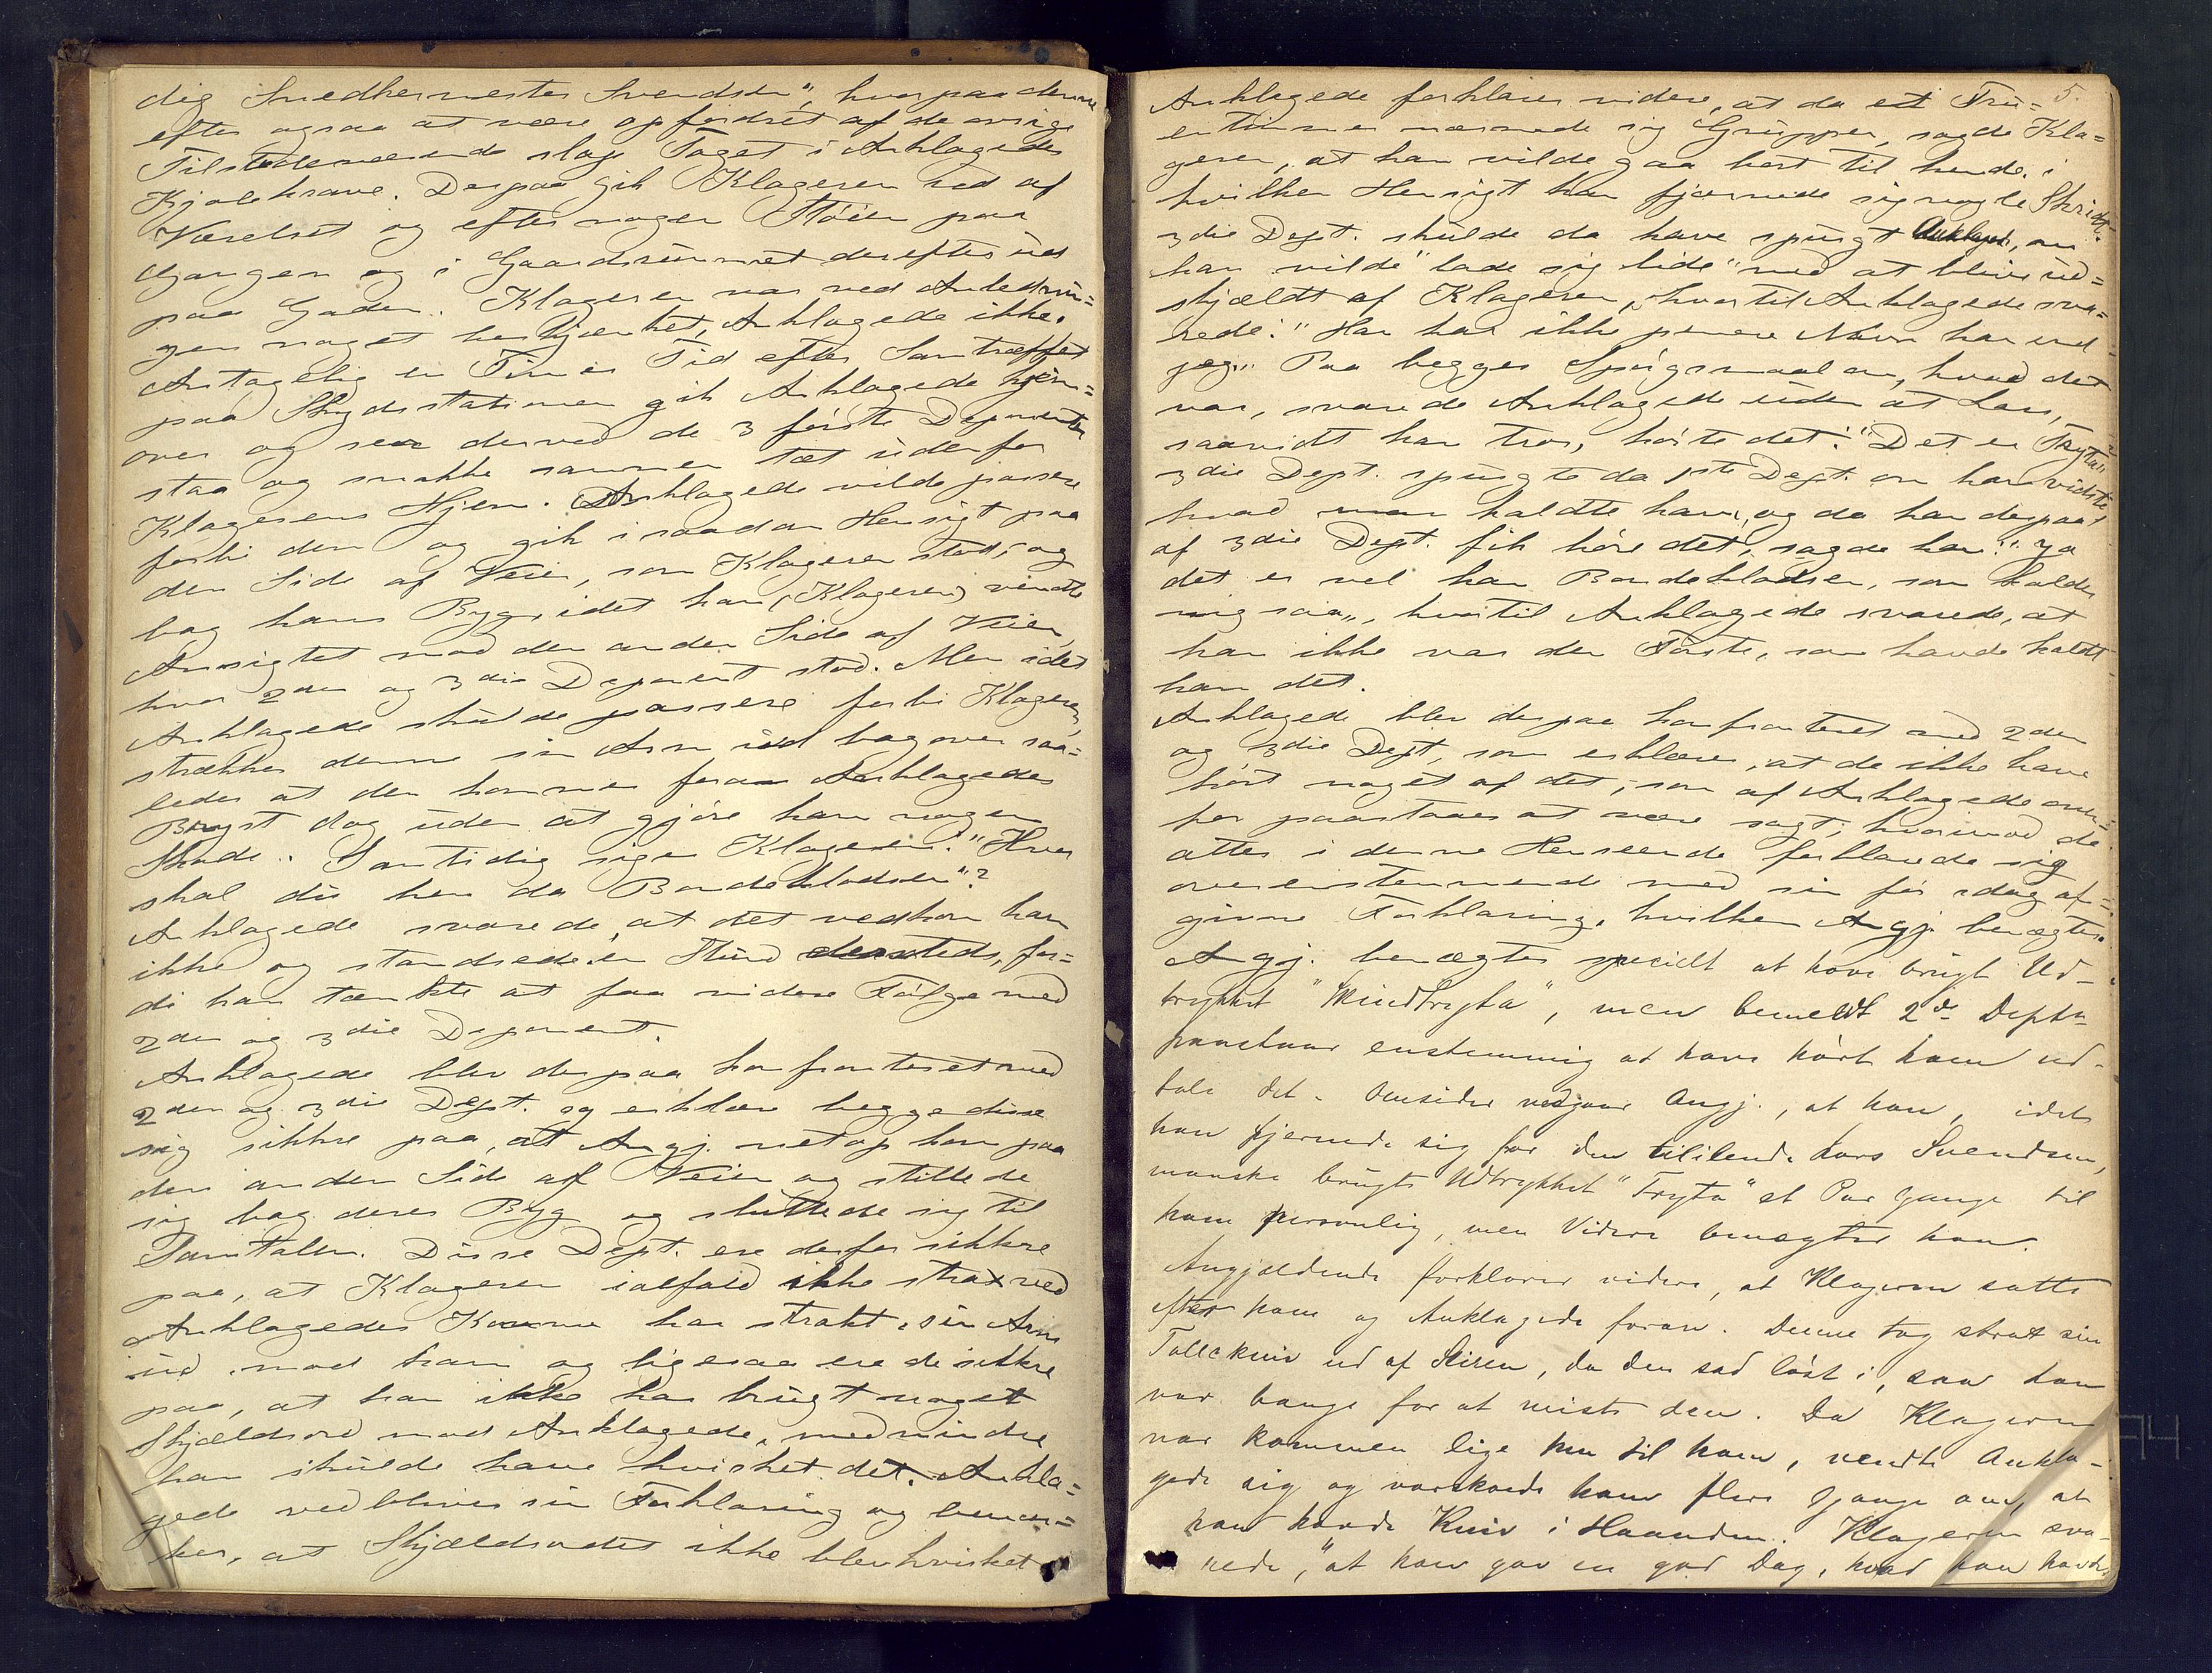 dig Snedkermester Svendsen", hvorpaa denne
efter ogsaa at være opfordret af de øvrige
Tilstedeværende slap Taget i Anklagedes
Kjolekrave. Derpaa gik Klageren ud af
Værelset og efter nogen Støien paa
Gangen og i Gaardsrummet derefter ud
paa Gaden. Klageren var ved Anlednin=
gen noget beskjænket, Anklagede ikke.
Antagelig en Times Tid efter Sam̄træffet
paa Skydsstationen gik Anklagede hjem=
over og saa derved de 3 første Deponenter
staa og snakke sammen tæt udenfor
Klagerens Hjem. Anklagede vilde passere
forbi dem og gik i saadan Hensigt paa
den Side af Veien, som Klageren stod, og
bag hans Ryg, idet han (Klageren) vendte
Ansigtet mod den anden Side af Veien,
hvor 2den og 3die Deponent stod. Men idet
Anklagede skulde passere forbi Klageren,
strækker denne sin Arm ud bagover saa=
ledes at den kommer foran Anklagedes
Bryst dog uden at gjøre ham nogen
Skade. Samtidig siger Klageren: "Hvor
skal du hen da Bondekladsen"?
Anklagede svarede, at det vedkom ham
ikke og standsede en Stund dersteds, for=
di han tænkte at faa videre Følge med
2den og 3die Deponent.
Anklagede blev derpaa konfronteret med
2den og 3die Dept. og erklære begge disse
sig sikkre paa, at Angj. netop kom paa
den anden Side af Veien og stillede
sig bag deres Ryg og sluttede sig til
Samtalen. Disse Dept. ere derfor sikkre
paa, at Klageren ialfald ikke strax ved
Anklagedes Komme har strakt sin Arm
ud mod ham og ligesaa ere de sikkre
paa, at han ikke har brugt noget
Skjældsord mod Anklagede, medmindre
han skulde have hvisket det. Ankla=
gede vedbliver sin Forklaring og bemær=
ker, at Skjældsordet ikke blev hvisket
5.
Anklagede forklarer videre, at da et Fru=
entimmer nærmede sig Gruppen, sagde Kla=
geren, at han vilde gaa bort til hende, i
hvilken Hensigt han fjernede sig nogle Skridt.
3die Dept. skulde da have spurgt Anklagede, om
han vilde "lade sig lide" med at blive ud=
skjældt af Klageren, hvortil Anklagede sva=
rede: "Han har ikke penere Navn han end
jeg". Paa begges Spørgsmaal om, hvad det
var, svarede Anklagede uden at Lars,
saavidt han tror, hørte det: "Det er Tryta"
3die Dept. spurgte da 1ste Dept. om han vidste
hvad man kaldte ham, og da han derpaa
af 3die Dept. fik høre det, sagde han: "Ja
det er vel han Bondekladsen, som kalder
mig saa", hvortil Anklagede svarede, at
han ikke var den Første, som havde kaldt
ham det.
Anklagede blev derpaa konfronteret med 2den
og 3die Dept, som erklære, at de ikke have
hørt noget af det, som af Anklagede oven=
for paastaaes at være sagt, hvorimod de
atter i denne Henseende forklarede sig
overensstemmende med sin før idag af=
givne Forklaring, hvilken Angj. benægter.
Angj. benægter specielt at have brugt Ud-
trykket "Skindtryta", men bemeldt 2de Deptr
paastaar enstemmig at have hørt ham ud-
tale det. Omsider vedgaar Angj., at han, idet
han fjernede sig for den tililende Lars Svendsen,
manske brugte Udtrykket "Tryta" et Par Gange til
ham personlig, men Videre benægter han.
Angjældende forklarer videre, at Klageren satte
efter ham og Anklagede foran. Denne tog strax sin
Tollekniv ud af Sliren, da den sad løst i, saa han
var bange for at miste den. Da Klageren
var kommen lige hen til ham, vendte Ankla-
gede sig og varskoede ham flere Gange om, at
han havde Kniv i Haanden. Klageren sva-
rede, "at han gav en god Dag, hvad han havde